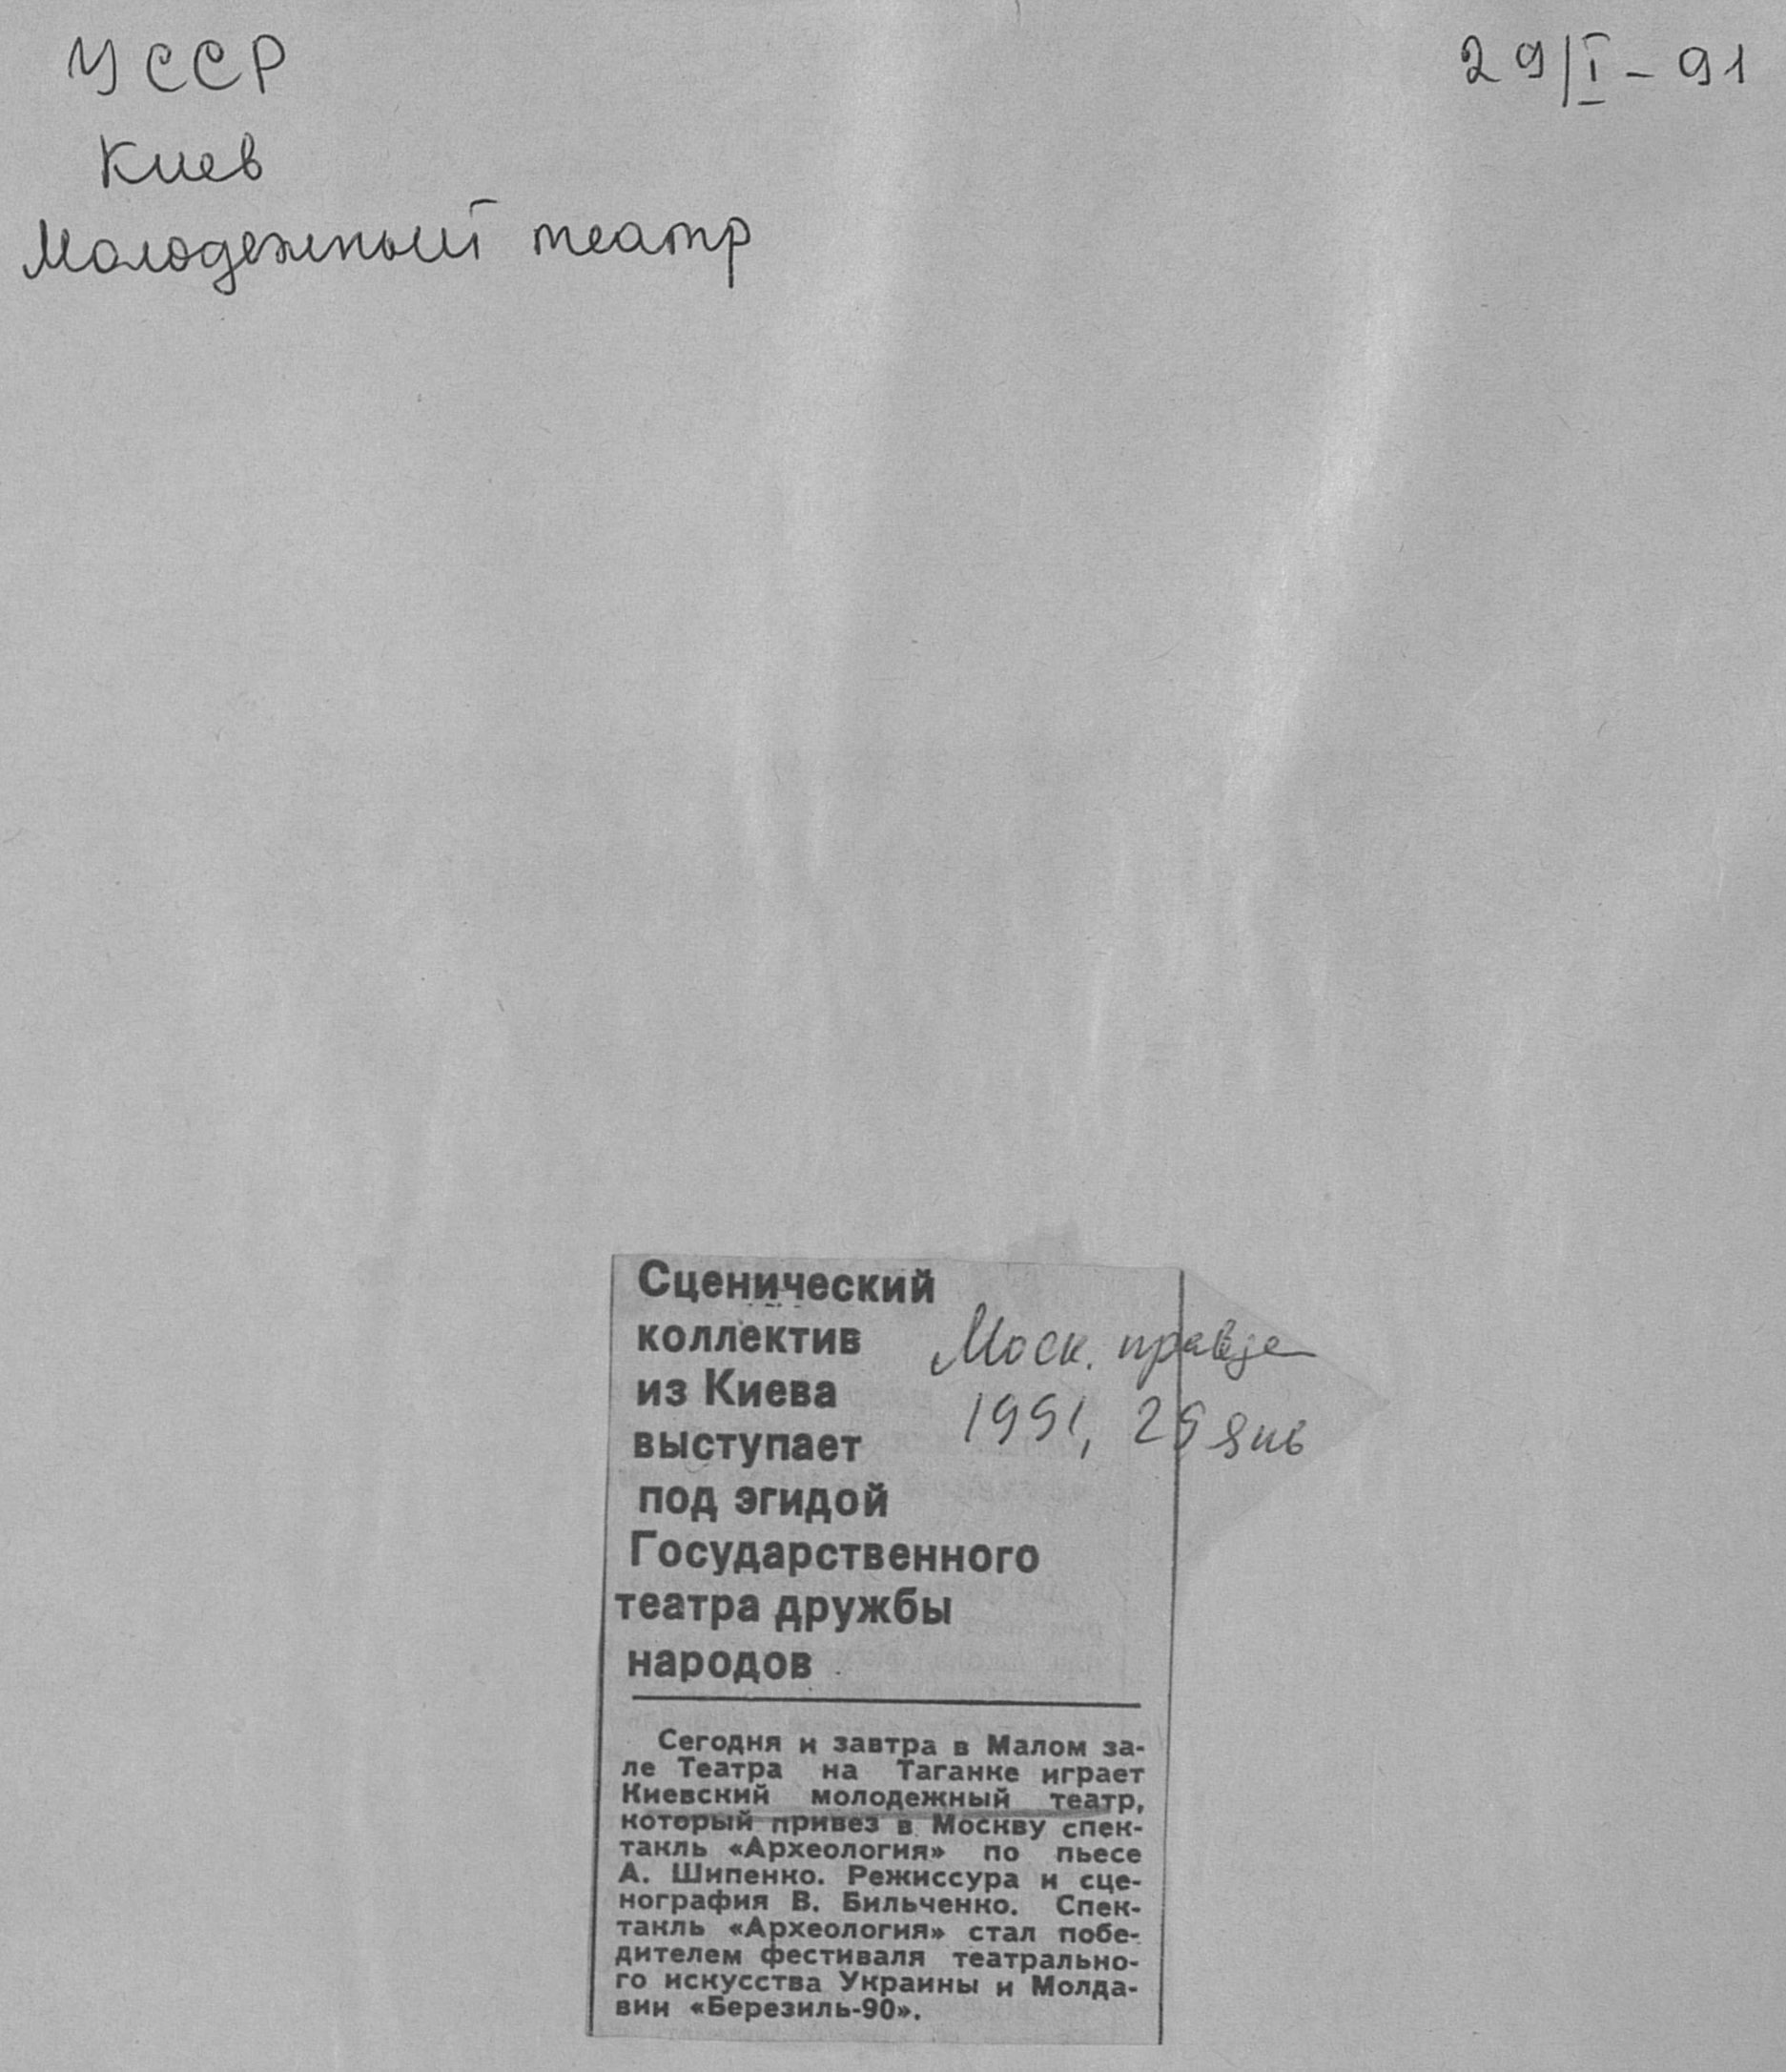 УССР
29/I - 91
Киев
Молодежный театр
Сценический
коллектив
из Киева
выступает
под эгидой
Государственного
театра дружбы
народов
Моск. правда
1991, 29 янв
Сегодня и завтра в Малом за-
ле Театра на Таганке играет
Киевский молодежный театр,
который привез в Москву спек-
такль «Археология» по пьесе
А. Шипенко. Режиссура и сце-
нография В. Бильченко. Спек-
такль «Археология» стал побе-
дителем фестиваля театрально-
го искусства Украины и Молда-
вии «Березиль-90».